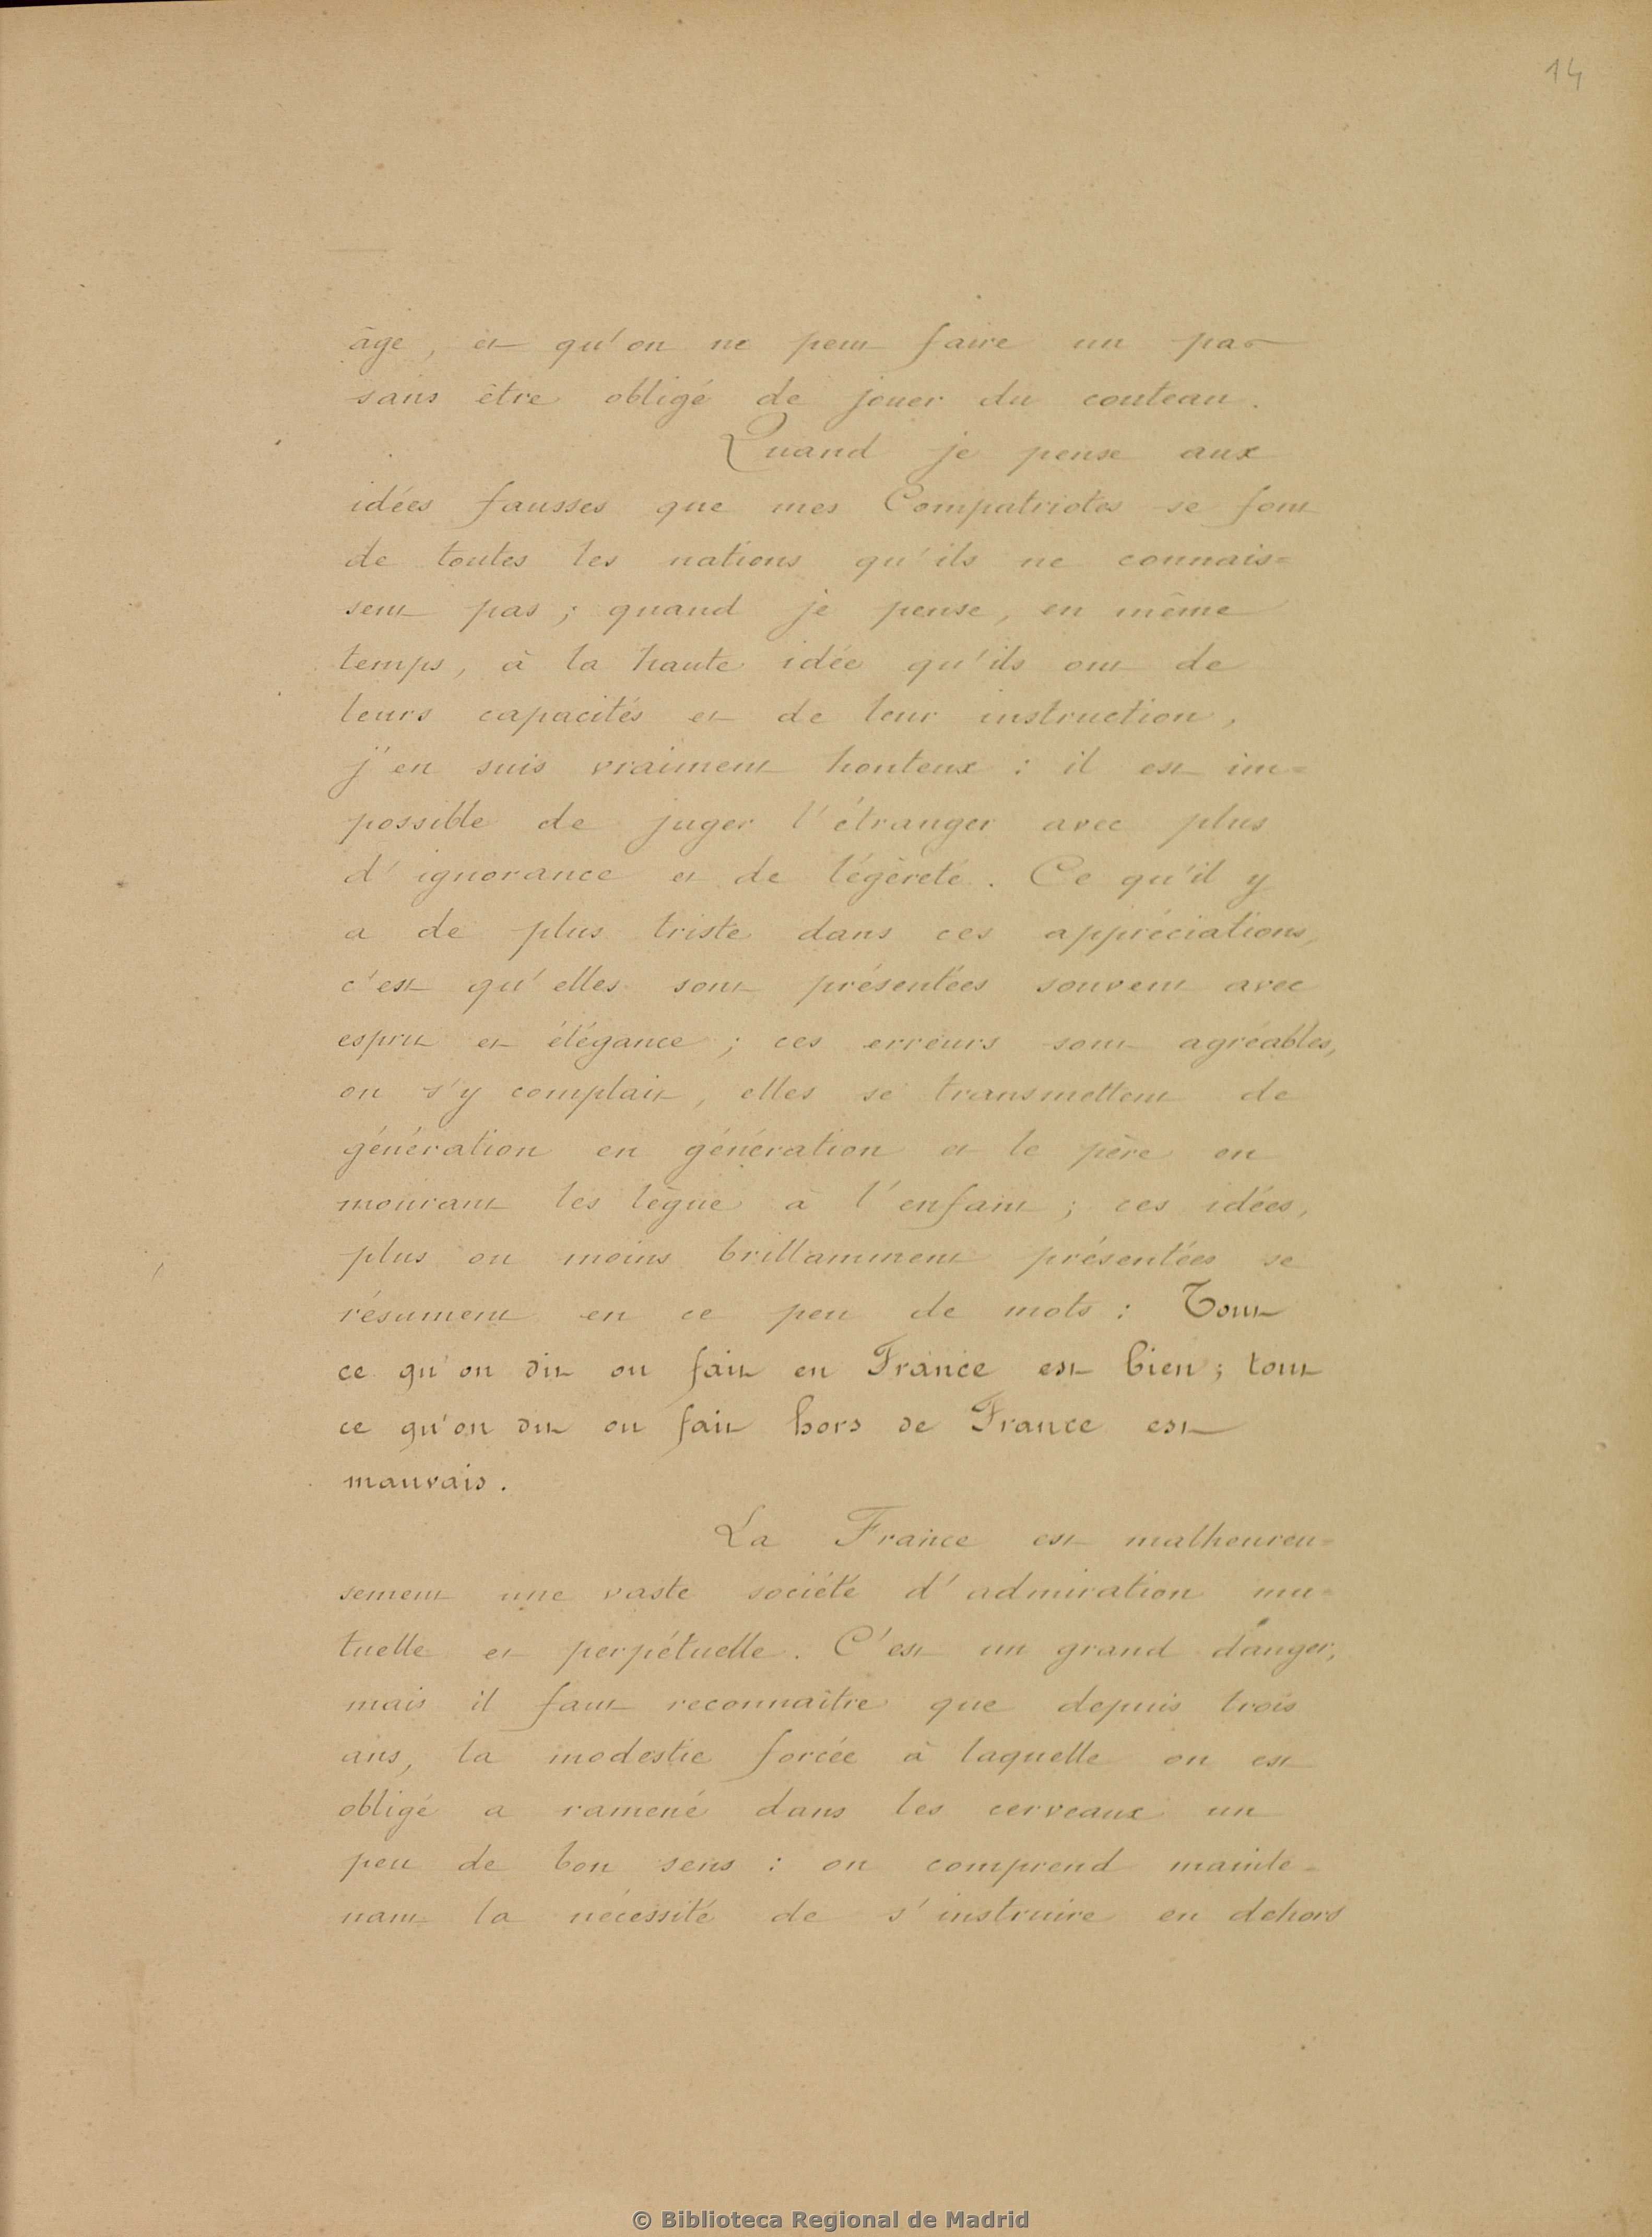 14
âge, et qu'on ne peut faire un pas
sans être obligé de jouer du couteau.
Quand je pense aux
idées fausses que mes Compatriotes se font
de toutes les nations qu'ils ne connais=
sent pas; quand je pense, en même
temps, à la haute idée qu'ils ont de
leurs capacités et de leur instruction,
j'en suis vraiment honteux : il est im=
possible de juger l'étranger avec plus
d'ignorance et de légèreté. Ce qu'il y
a de plus triste dans ces appréciations,
c'est qu'elles sont présentées souvent avec
esprit et élégance ; ces erreurs sont agréables,
on s'y complait, elles se transmettent de
génération en génération et le père en
mourant les lègue à l'enfant ; ces idées,
plus ou moins brillamment présentées se
résument en ce peu de mots : Tout
ce qu'on dit ou fait en France est bien; tout
ce qu'on dit ou fait hors de France est
mauvais.
La France est malheureu=
sement une vaste société d'admiration mu=
tuelle et perpétuelle. C'est un grand danger,
mais il faut reconnaître que depuis trois
ans, la modestie forcée à laquelle on est
obligé a ramené dans les cerveaux un
peu de bon sens : on comprend mainte=
nant la nécessité de s'instruire en dehors
© Biblioteca Regional de Madrid